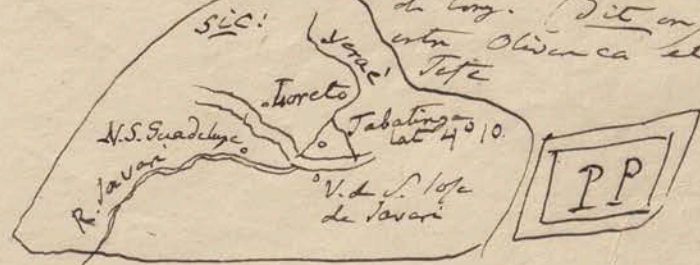 de long. Dit en
sic!
entre Olivença et
Yeraé
Tefe
Loreto
Tabatinga
lat 4° 10.
N.S. Guadelupe
R. Javari
V. de S. Jose
de Javari
PP